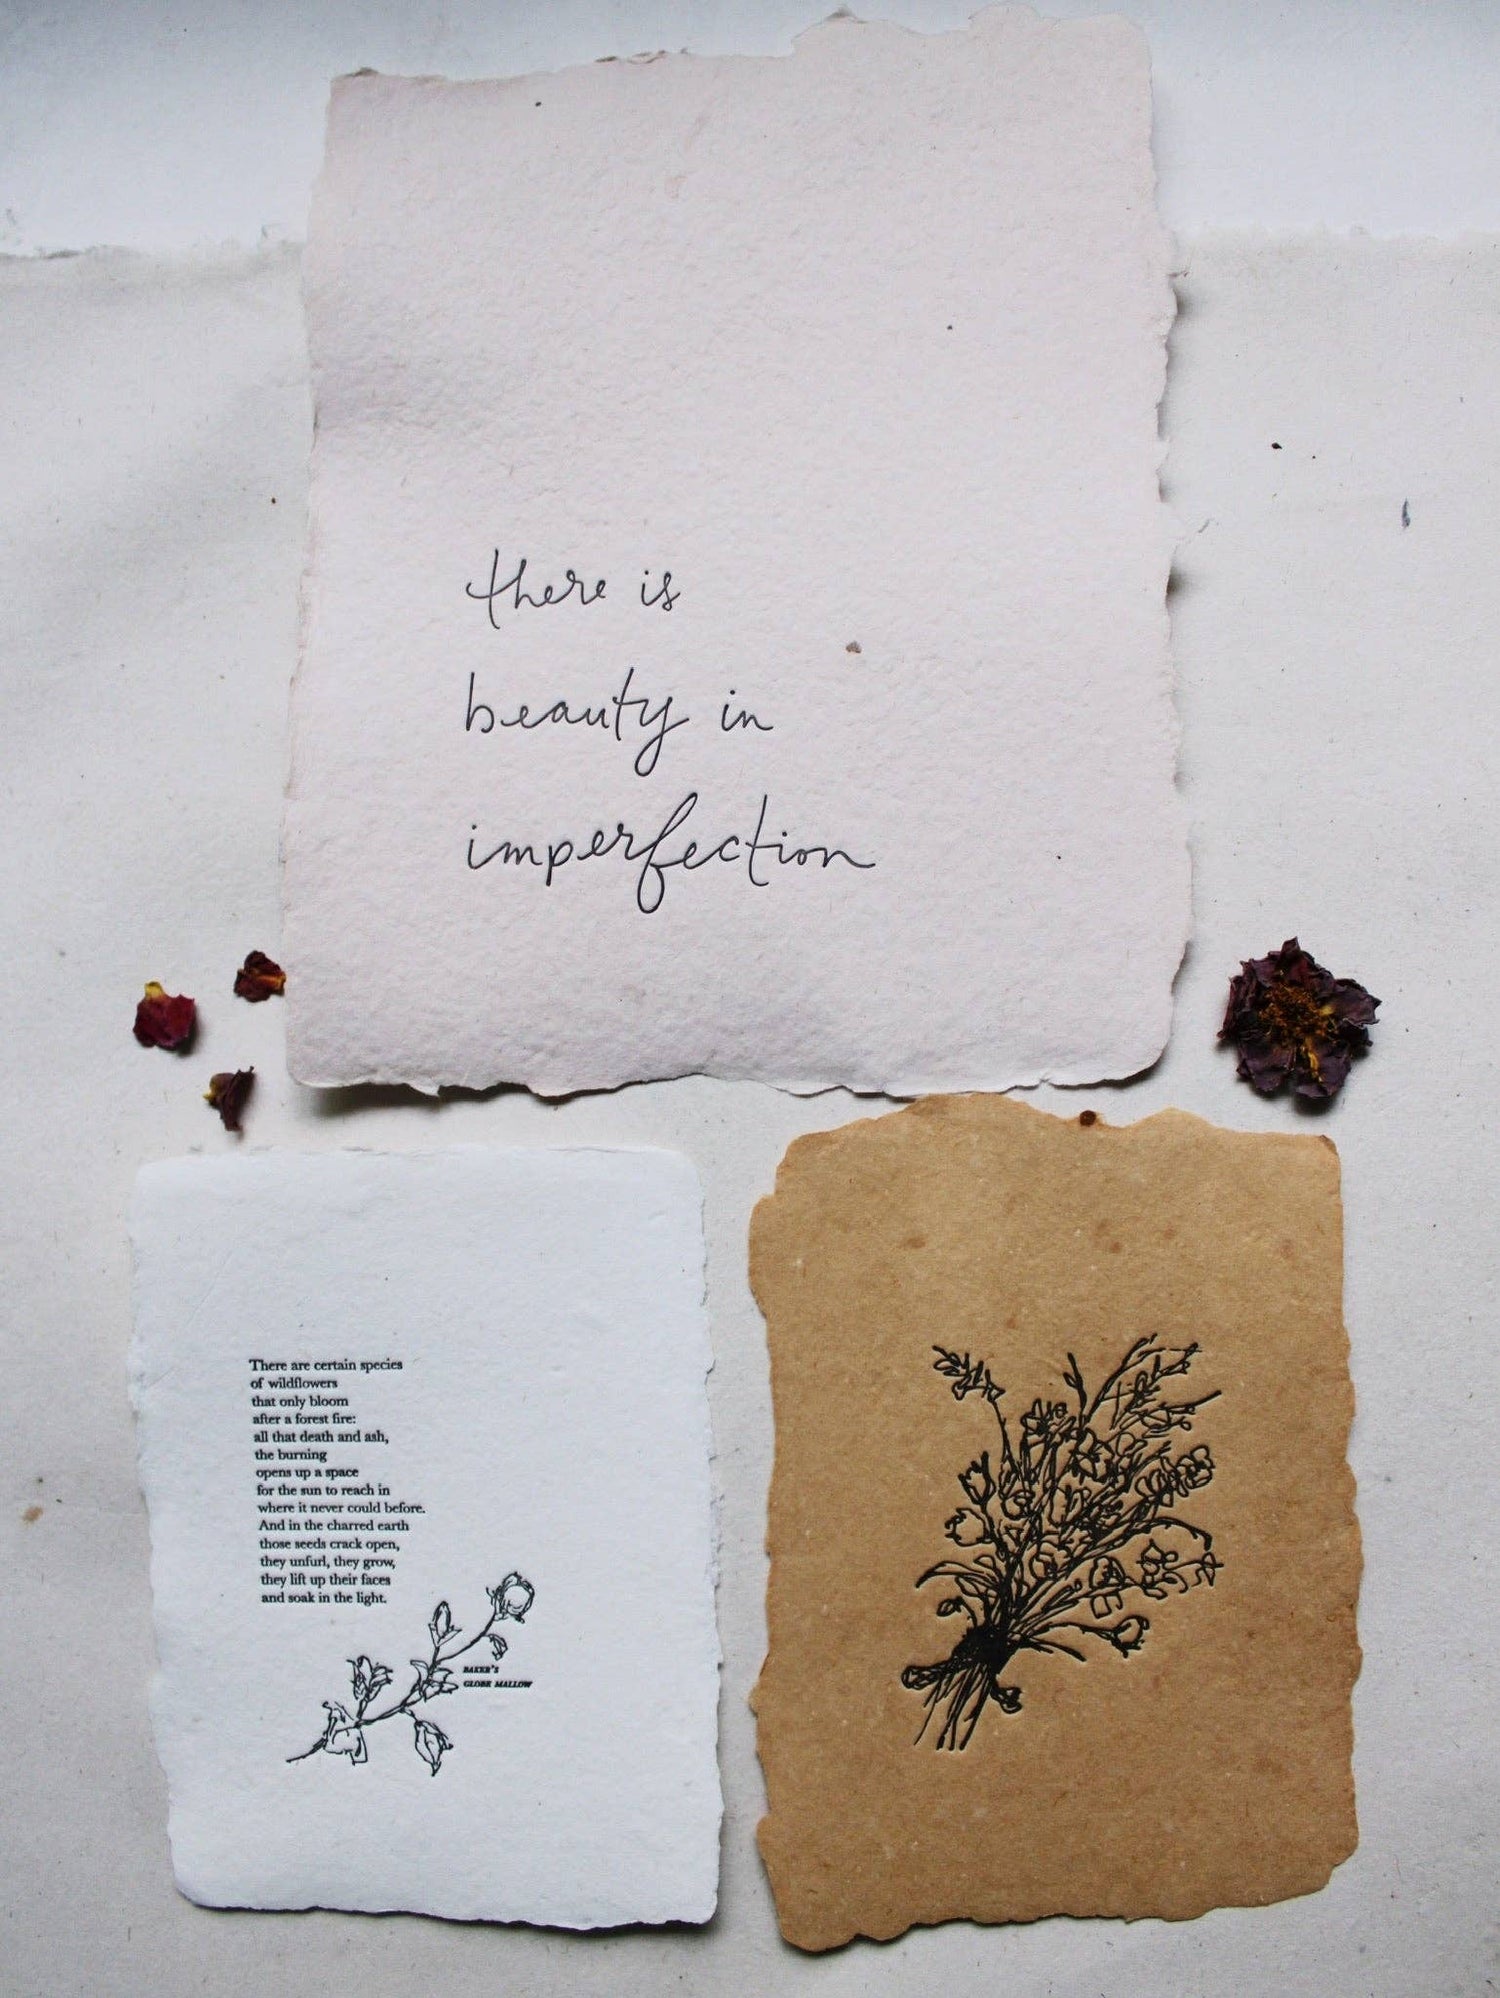 there is
beauty in
imperfection
There are certain species
of wildflowers
that only bloom
after a forest fire:
all that death and ash,
the burning
opens up a space
for the sun to reach in
where it never could before.
And in the charred earth
those seeds crack open,
they unfurl, they grow,
they lift up their faces
and soak in the light.
BAKER'S
GLOBE MALLOW